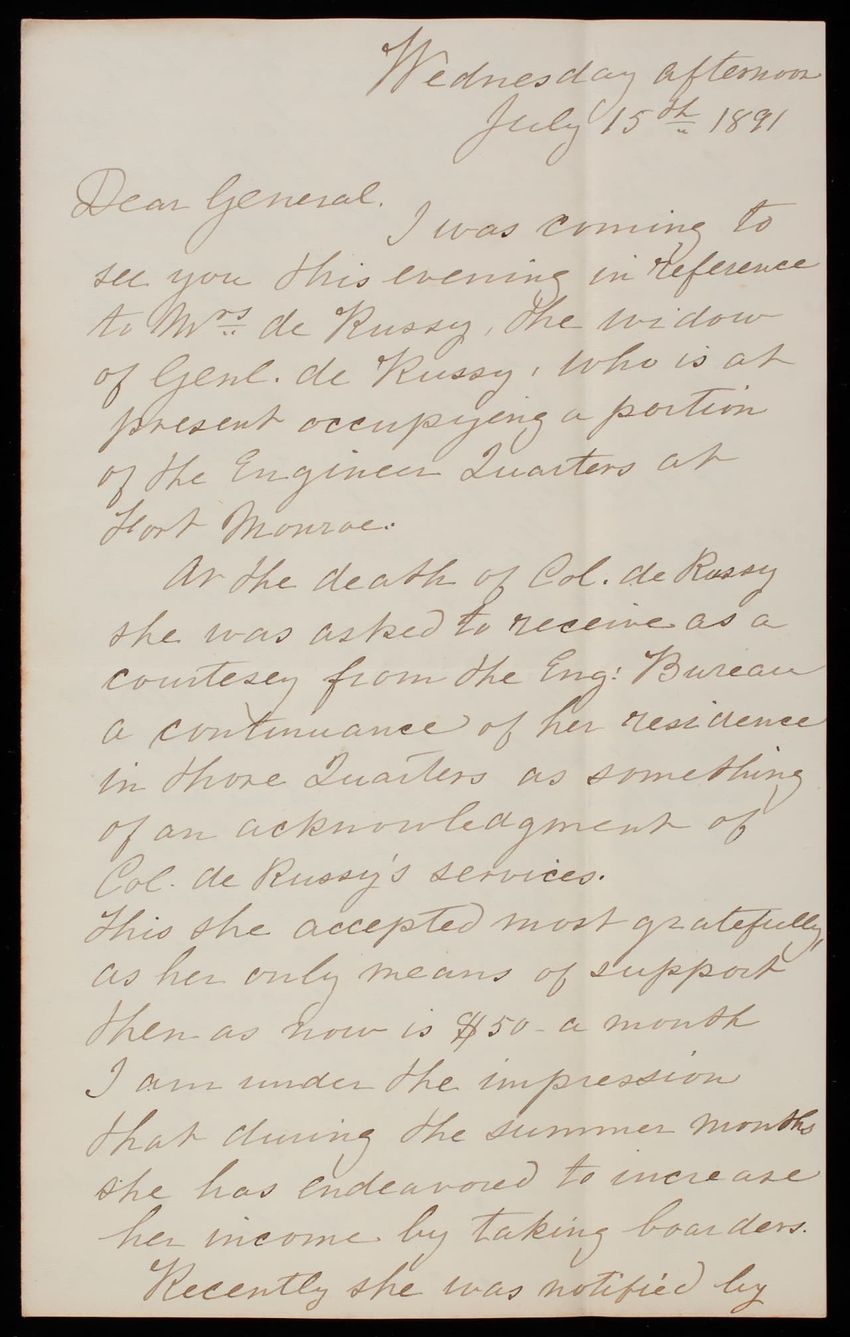 Wednesday afternoon
July 15th 1891
Dear General.
I was coming to
see you this evening in reference
to Mrs de Russy, the widow
of Genl. de Russy, who is at
present occupying a portion
of the Engineer Quarters at
Fort Monroe.
At the death of Col. de Russy
she was asked to receive as a
courtesey from the Eng: Bureau
a continuance of her residence
in those Quarters as something
of an acknowledgment of
Col. de Russy's services.
This she accepted most gratefully,
as her only means of support
then as now is $50 - a month
I am under the impression
that during the summer months
she has endeavored to increase
her income by taking boarders.
Recently she was notified by